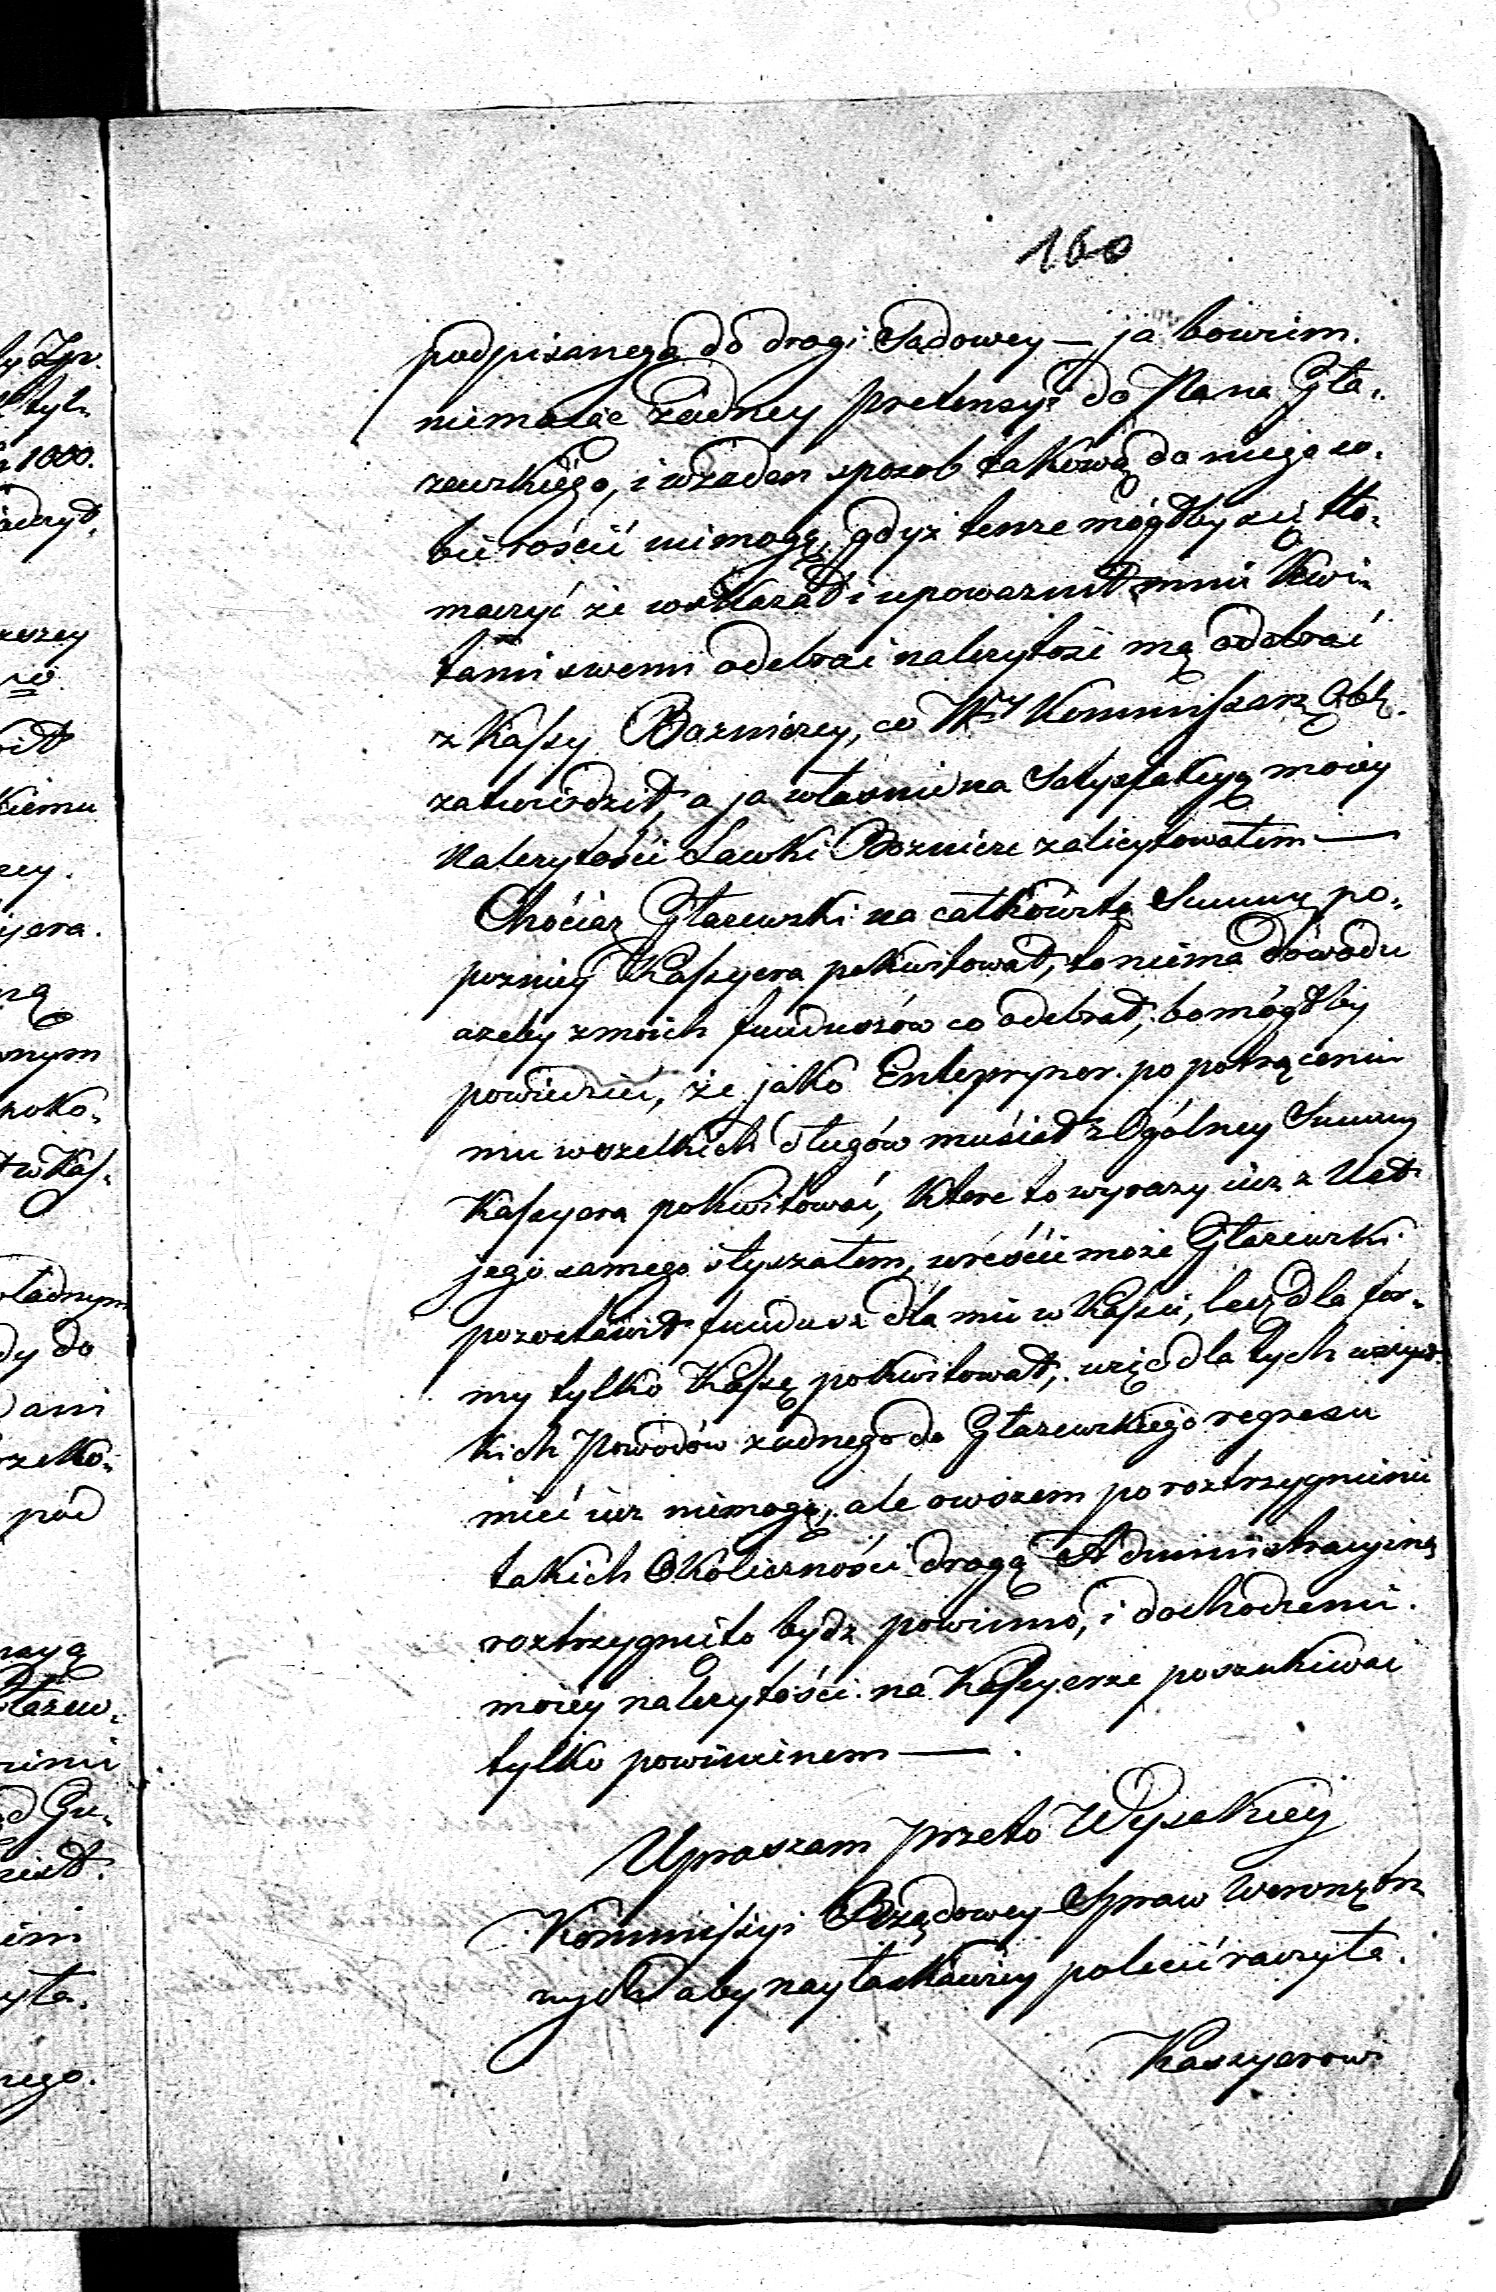 160
podpisanego do drogi Sądowey — ja bowiem
niemaiąc żadney pretensyi do Pana Gła-
zewskiego, i wżaden sposob takową do niego so-
bie rościć niemogę, gdyż tenze mógłby się tło-
maczyć że wskazał i upoważnił mnie Kwi-
tami swemi odebrać należytość mą odebrać
z Kassy Bozniczey, co Wny Kommissarz Obb.
zatwierdził, a ja własnie na Satysfakcyą moiey
Należytości Ławki Boznicze zalicytowałem —
Chociaż Głazewski na całkowitą Summę po-
pozniey Kassyera pokwitował, to niema dowodu
azeby z moich funduszów co odebrał, bo mógłby
powiedzieć, że jako Entepryner po potrąceniu
mu wszelkich długów musiał z Ogólney Summy
Kassyera pokwitować, Które to wyrazy iuż z Ust
jego samego słyszałem, wreście może Głazewski
pozostawił fundusz dla mie w Kassie, lecz dla for-
my tylko Kassę pokwitował, więc dla tych wszyst-
kich Powodów żadnego do Głazewskiego regresu
mieć iuż niemogę, ale owszem po roztrzygnieniu
takich Okoliczności drogą Administracyiną
roztrzygnito bydz powinno, i dochodzenie
moiey należytości na Kassyerze poszukiwać
tylko powinienem —
Upraszam przeto Wysokiey
Kommissyi Rządowey Spraw Wewnętrz
nych aby nayłaskawiey polecić raczyła
Kaszyerowi
ły Zpr.
tyl-
1000.
Kiemu
jera.
onym
poko-
w Kas-
dy do
ami
pod
Głazew-
yła.
nego.